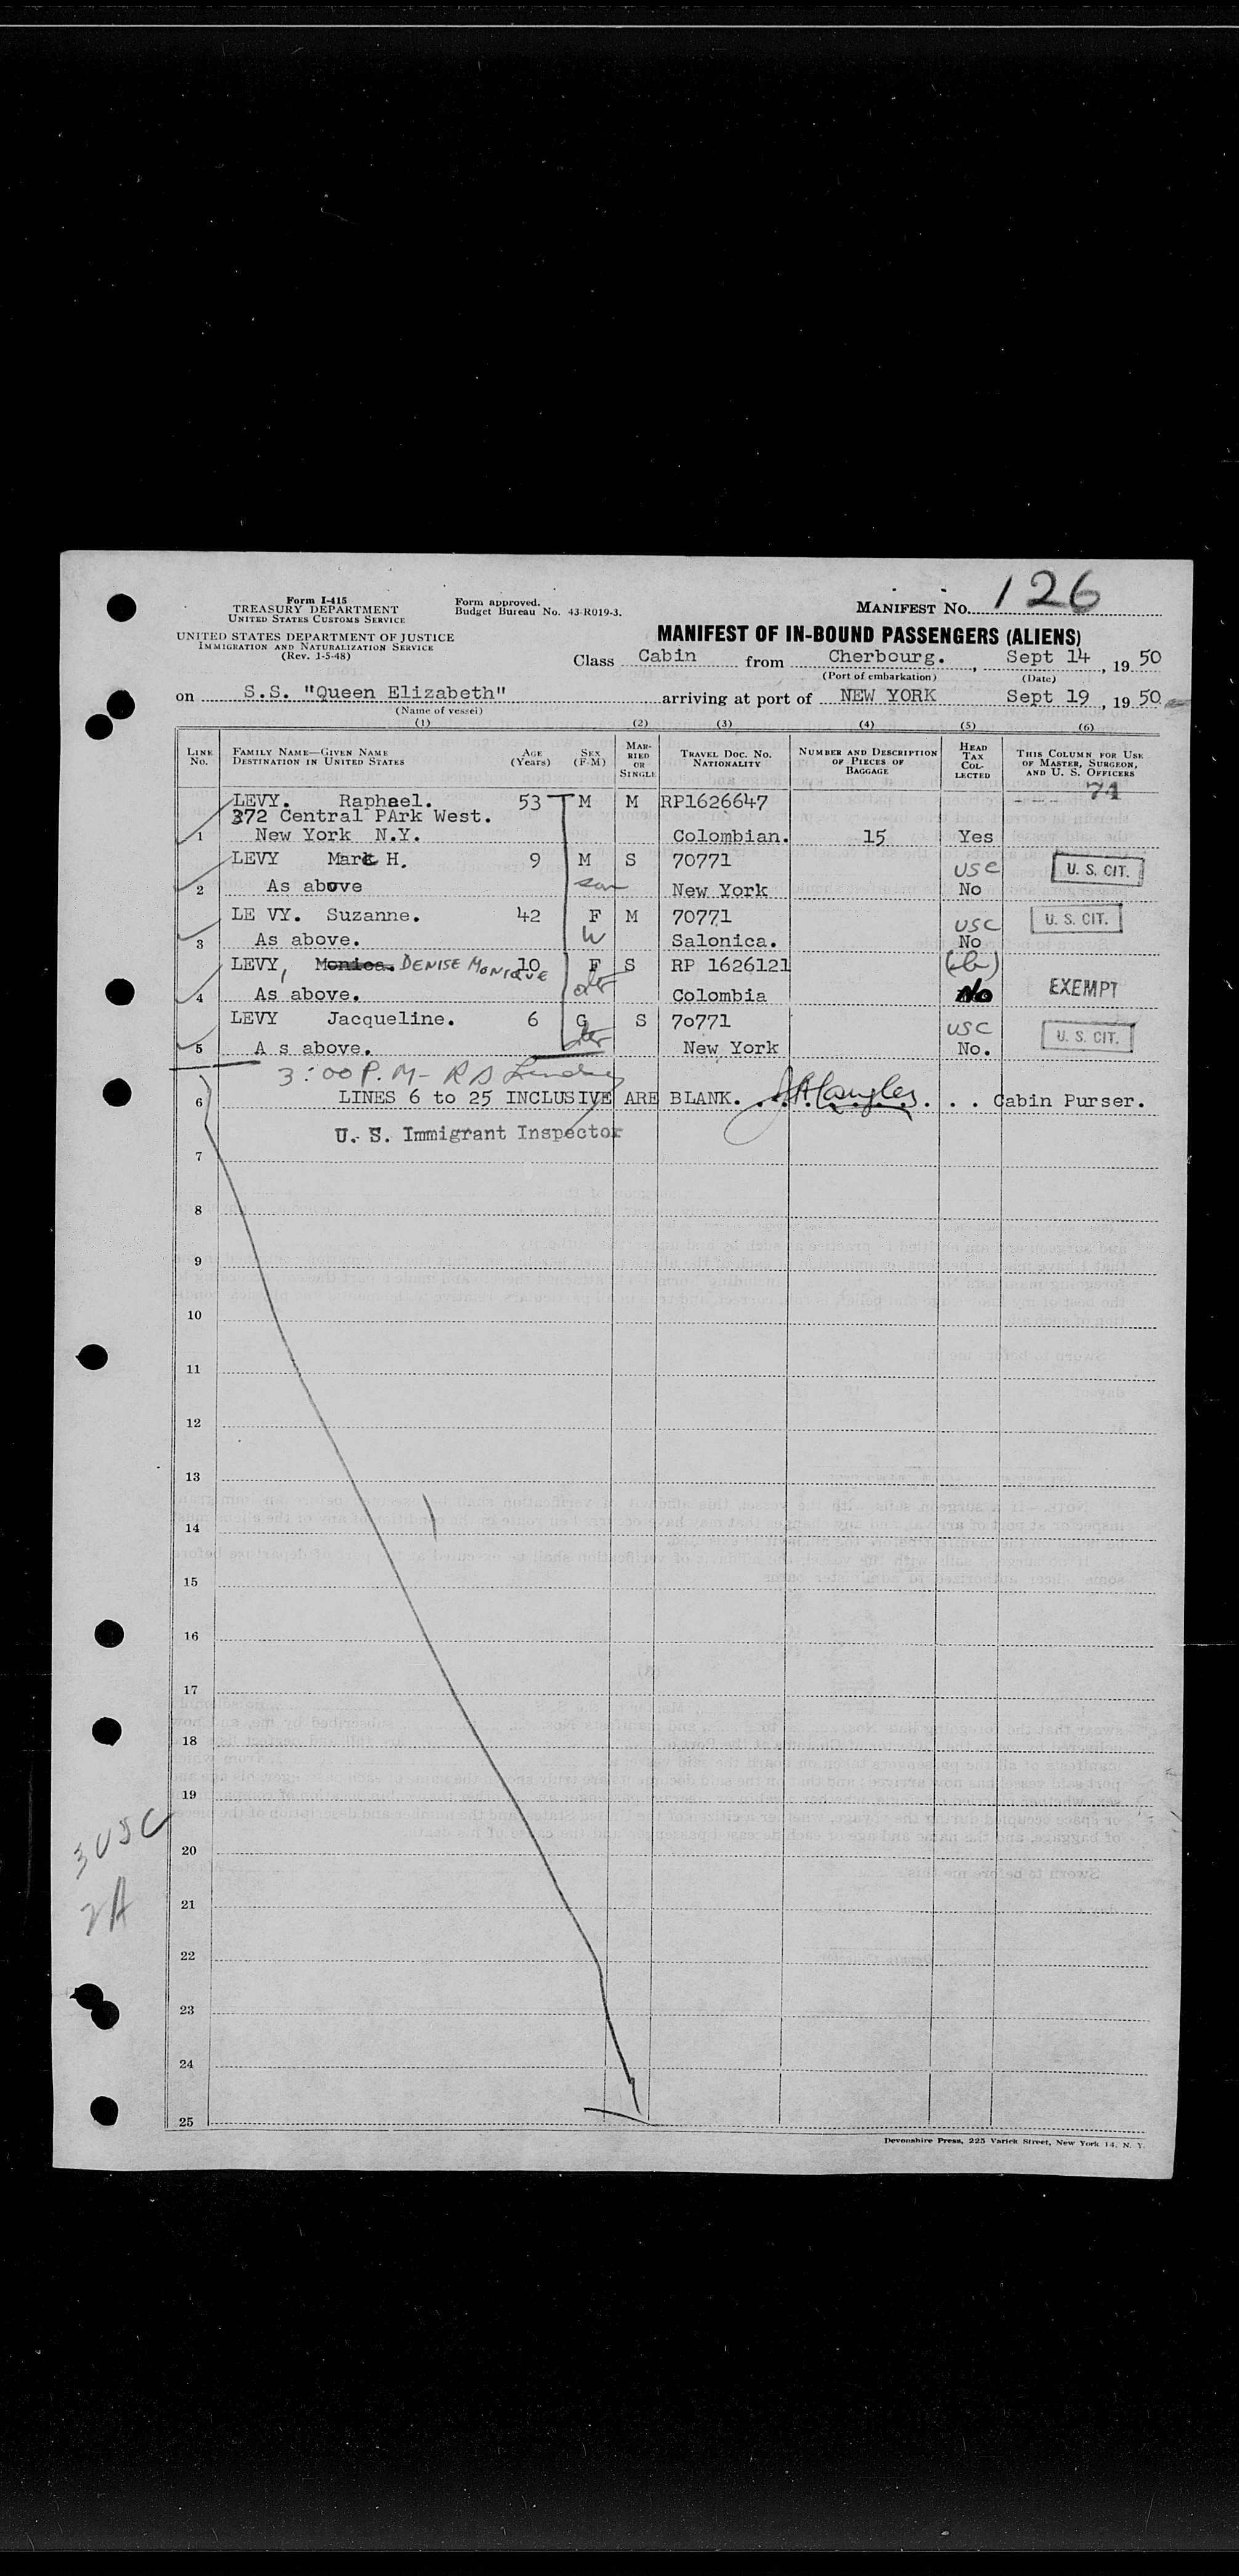 Form I-415
TREASURY DEPARTMENT
UNITED STATES CUSTOMS SERVICE
Form approved.
Budget Bureau No. 43-R019-3.
MANIFEST NO. 126
UNITED STATES DEPARTMENT OF JUSTICE
IMMIGRATION AND NATURALIZATION SERVICE
(Rev. 1-5-48)
MANIFEST OF IN-BOUND PASSENGERS (ALIENS)
Class Cabin from Cherbourg. , Sept 14 , 19 50
(Port of embarkation) (Date)
on S.S. "Queen Elizabeth" arriving at port of NEW YORK Sept 19 , 19 50
(Name of vessel)
(1) (2) (3) (4) (5) (6)
LINE No. FAMILY NAME—GIVEN NAME DESTINATION IN UNITED STATES AGE (Years) SEX (F-M) MARRIED OR SINGLE TRAVEL DOC. NO. NATIONALITY NUMBER AND DESCRIPTION OF PIECES OF BAGGAGE HEAD TAX COLLECTED THIS COLUMN FOR USE OF MASTER, SURGEON, AND U. S. OFFICERS
74
LEVY. Raphael. 53 M M RP1626647
372 Central PArk West.
1 New York N.Y. Colombian. 15 Yes
LEVY Mark H. 9 M S 70771 USC U. S. CIT.
2 As above son New York No
LE VY. Suzanne. 42 F M 70771 USC U. S. CIT.
3 As above. W Salonica. No
LEVY, Monica. DENISE MONIQUE 10 F S RP 1626121
4 As above. dtr Colombia No EXEMPT
LEVY Jacqueline. 6 G S 70771 USC U. S. CIT.
5 A s above. dtr New York No.
3:00 P.M-
6 LINES 6 to 25 INCLUSIVE ARE BLANK. . . . . Cabin Purser.
U. S. Immigrant Inspector
7
8
9
10
11
12
13
14
15
16
17
18
19
3 USC
20
2A
21
22
23
24
25
Devonshire Press, 225 Varick Street, New York 14, N. Y.